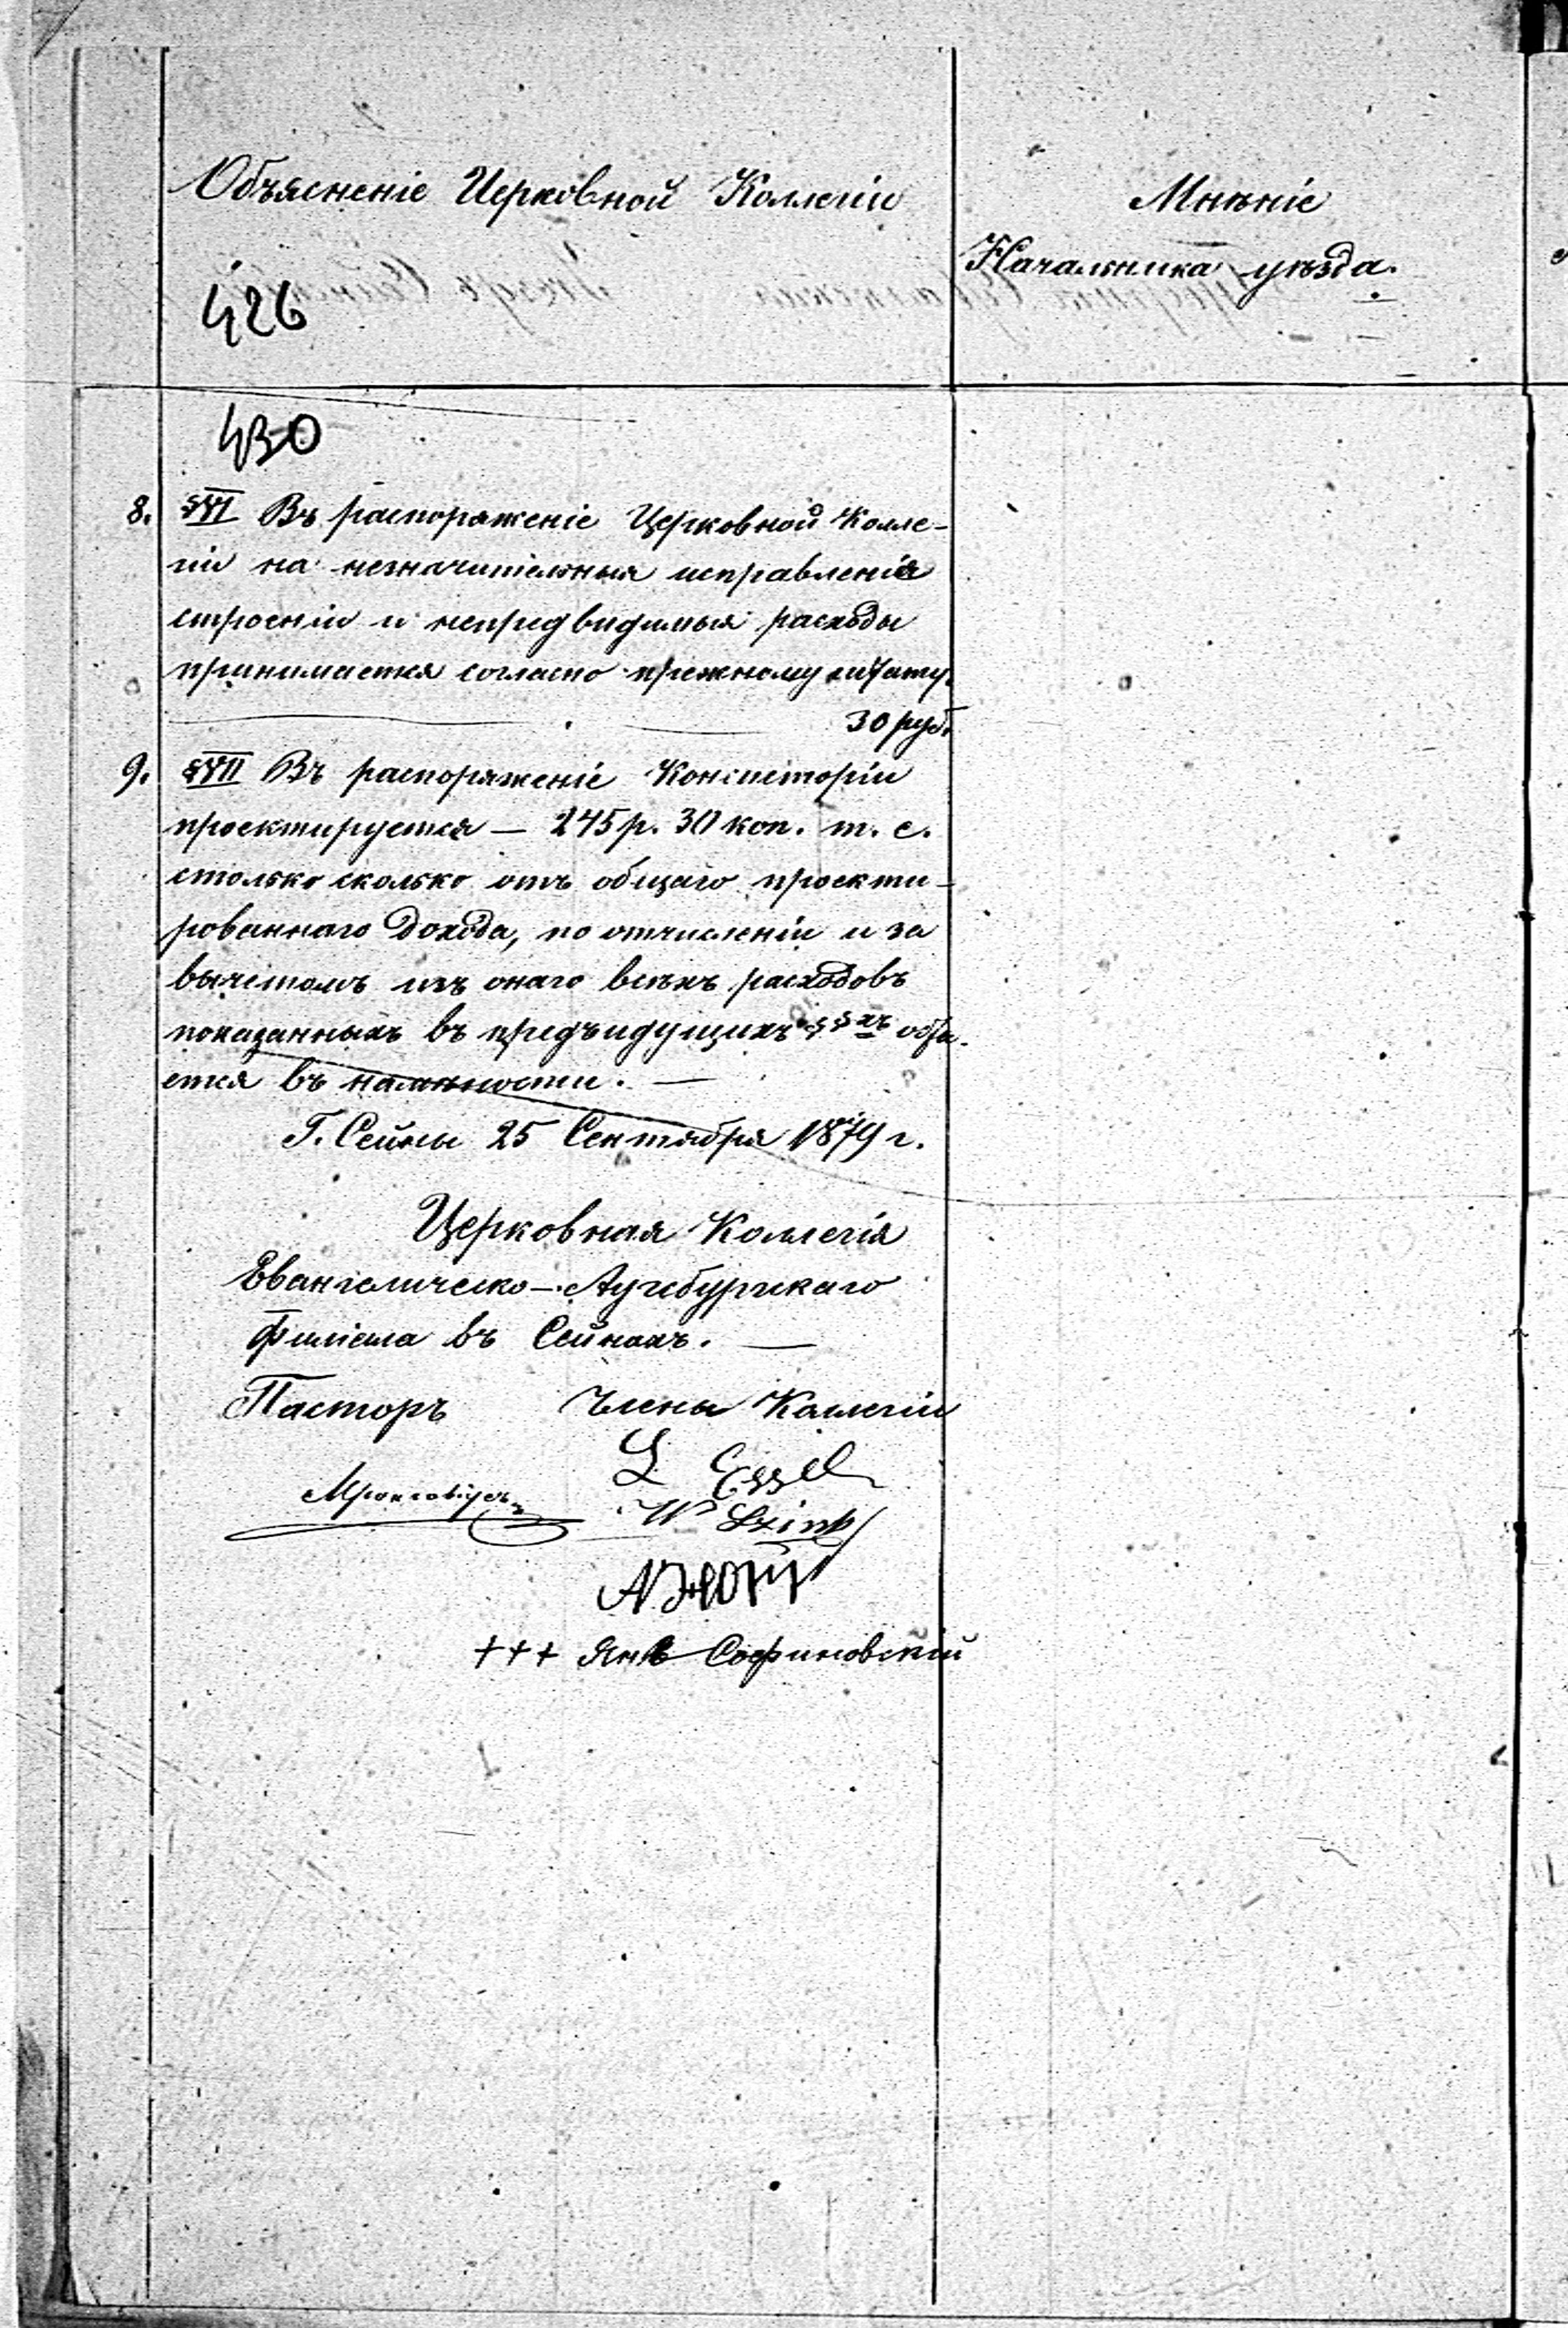 Объясненіе Церковной Коллегіи
Мнѣніе
Начальника уѣзда.
426
430
8. §VI Въ распоряженіе Церковной Колле-
гіи на незначительныя исправленія
строеніи и непредвидимыя расходы
принимается согласно прежному штату.
30 руб.
9. §VII Въ распоряженіе Консисторіи
проектируется — 245 р. 30 коп. т. е.
столько сколько отъ общаго проекти-
рованнаго дохода, по отчисленіи и за
вычетомъ изъ онаго всѣхъ расходовъ
показанныхъ въ предъидущихъ §§хъ
ется въ наличности. —
Г. Сейны 25 Сентября 1879 г.
Церковная Коллегія
Евангелическо-Аугсбургскаго
Филіала въ Сейнахъ. —
Пасторъ Члены Коллегіи
L
W
+++ Янъ Софиновскій